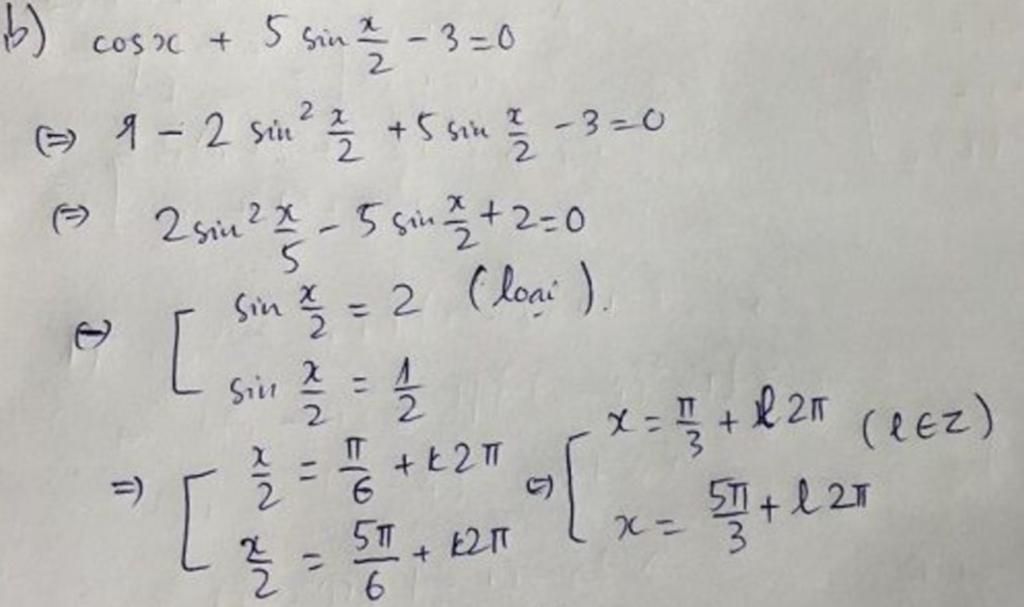 b) cosx + 5 sin x/2 - 3 = 0
(=) 1 - 2 sin² x/2 + 5 sin x/2 - 3 = 0
(=) 2 sin² x/5 - 5 sin x/2 + 2 = 0
(=) [ sin x/2 = 2 (loại).
sin x/2 = 1/2
=) [ x/2 = π/6 + k2π (=) [ x = π/3 + l2π (l∈Z)
x/2 = 5π/6 + k2π x = 5π/3 + l2π